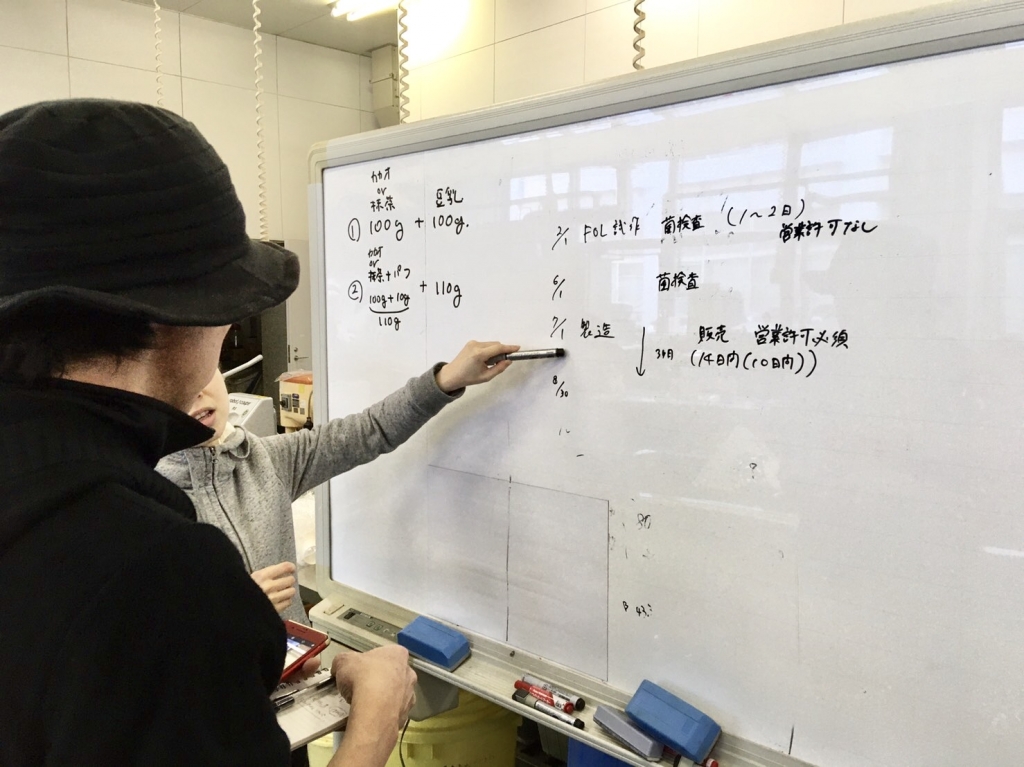 カカオ
or
抹茶
豆乳
① 100g + 100g.
カカオ
or
抹茶+パフ
② 100g+10g + 110g
110g
2/1 FOL試作 菌検査 (1〜2日)
営業許可なし
6/1 菌検査
7/1 製造 販売 営業許可必須
(14日内(10日内))
8/30